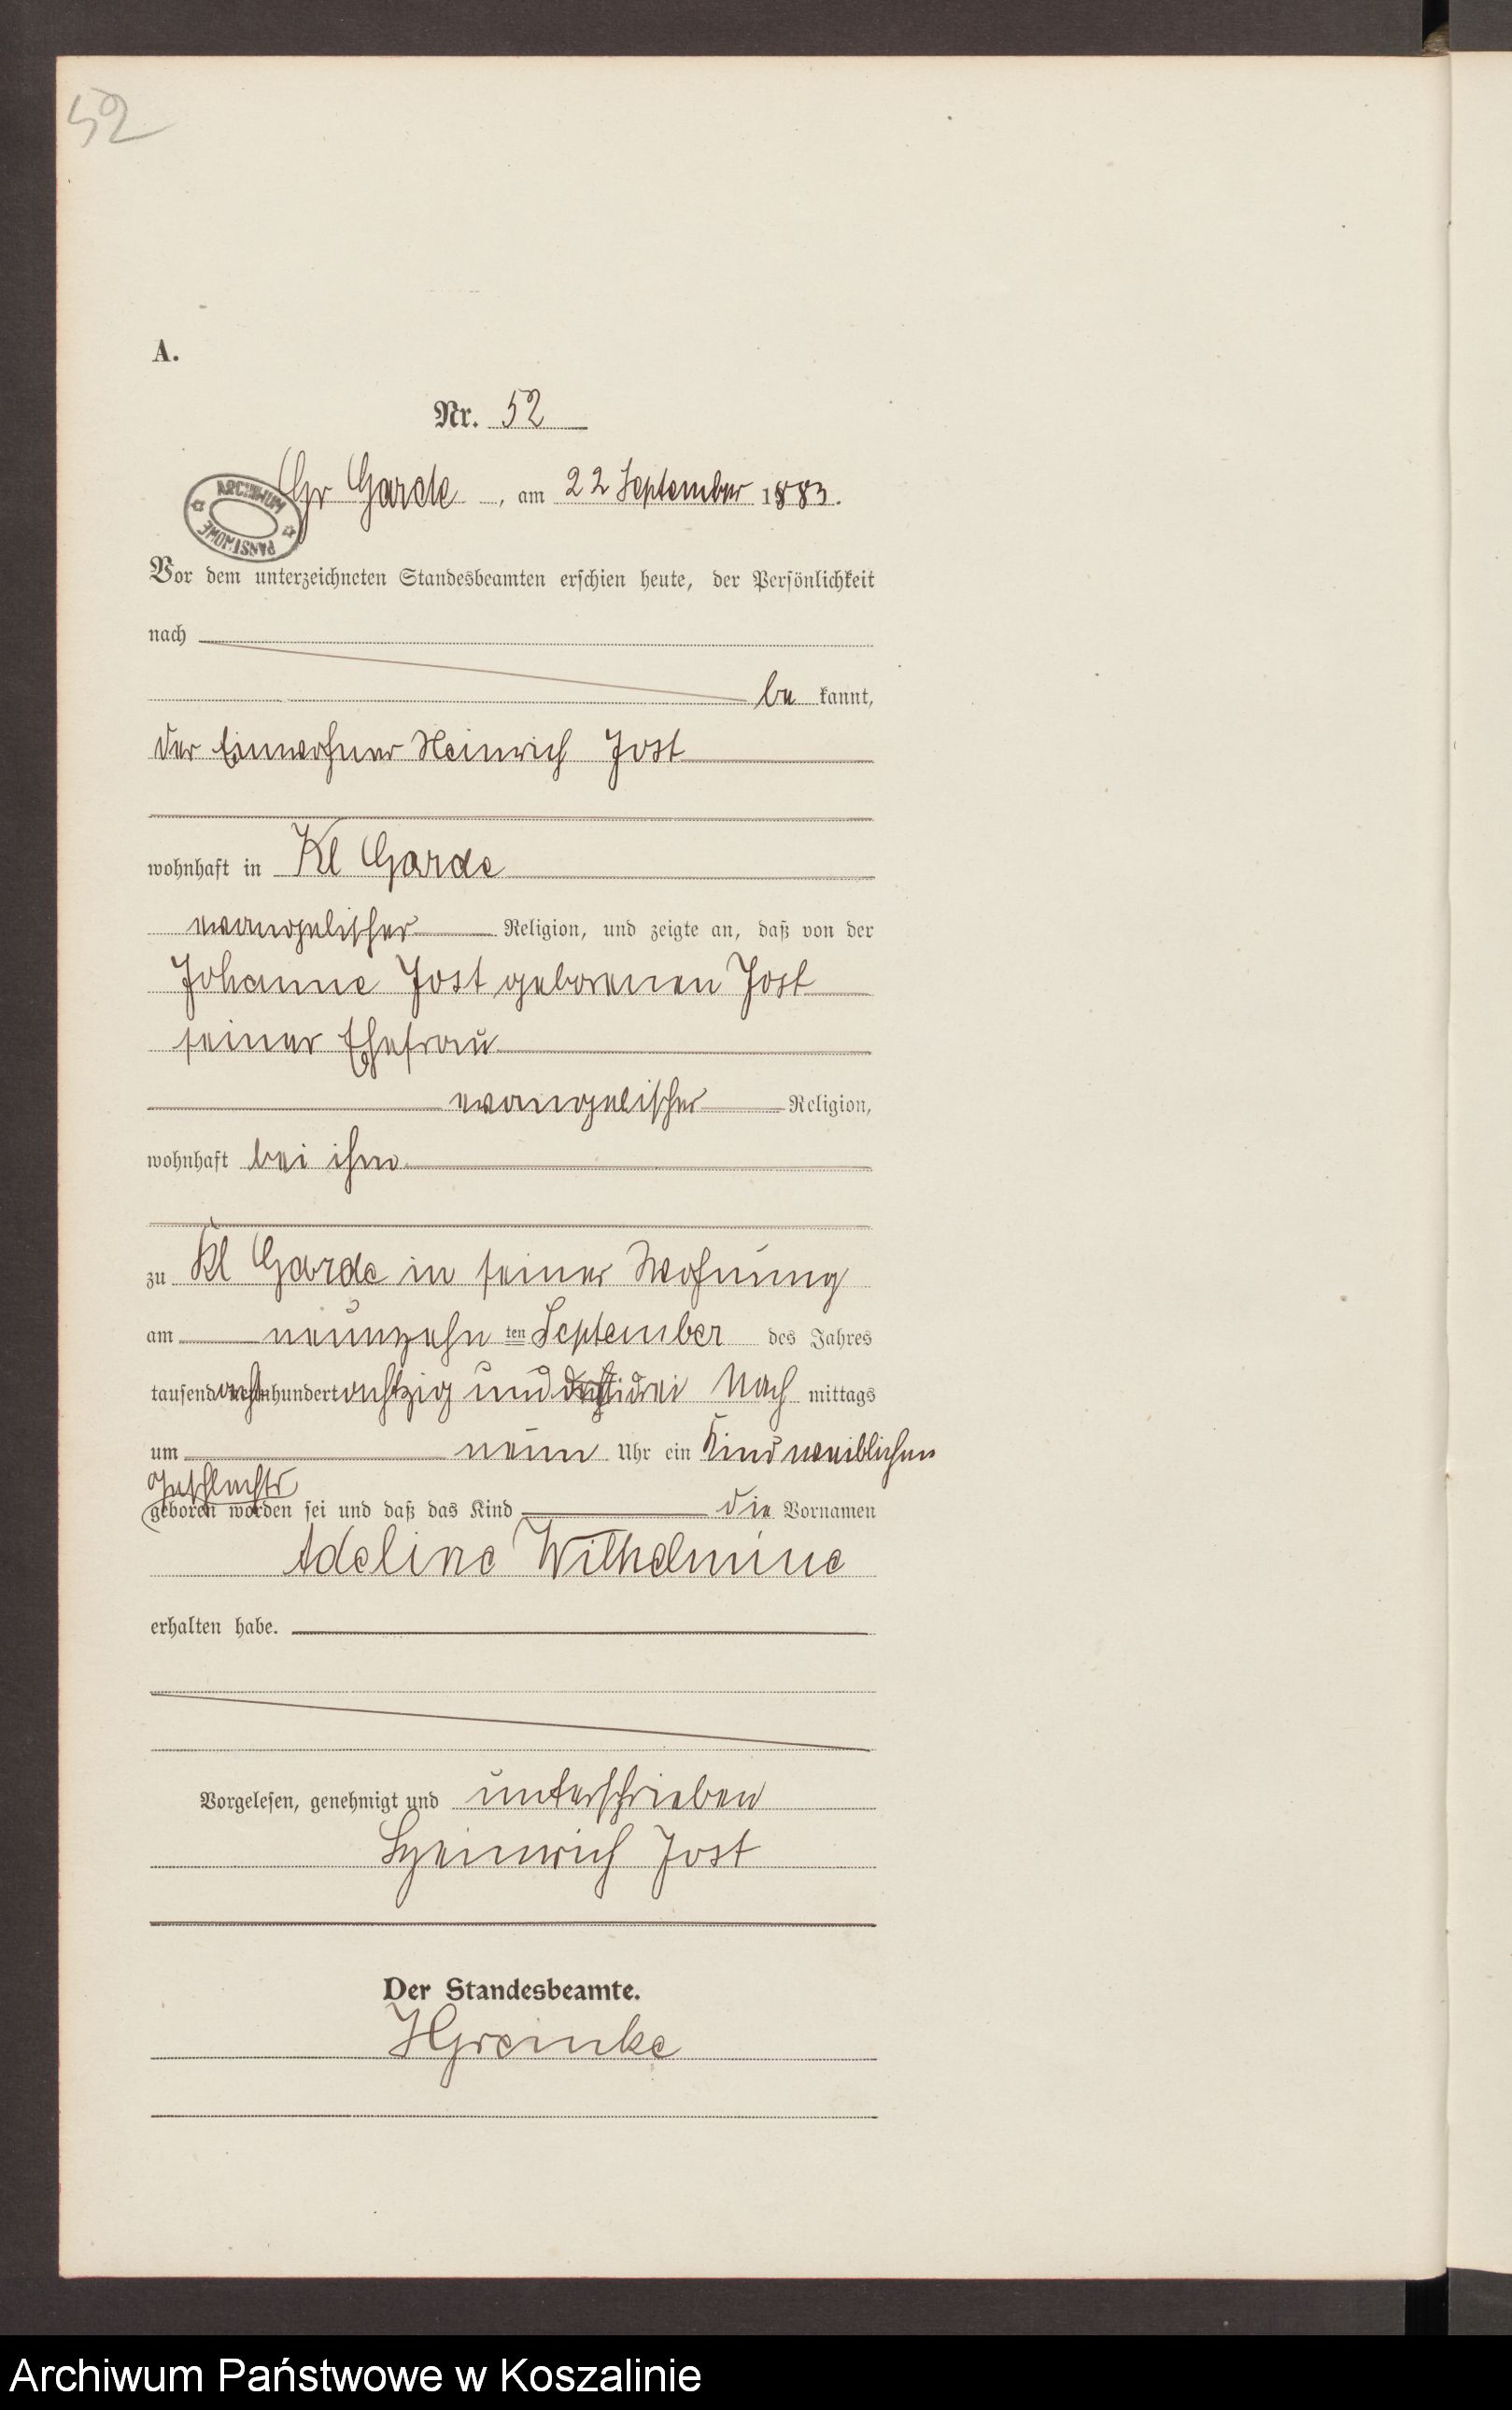 52
A.
Nr. 52
ARCHIWUM PAŃSTWOWE
Gr Garde, am 22 September 1883.
Vor dem unterzeichneten Standesbeamten erschien heute, der Persönlichkeit
nach
be kannt,
der Einwohner Heinrich Jost
wohnhaft in Kl Garde
evangelischer Religion, und zeigte an, daß von der
Johanne Jost geborenen Jost
seiner Ehefrau
evangelischer Religion,
wohnhaft bei ihm
zu Kl Garde in seiner Wohnung
am neunzehn ten September des Jahres
tausend acht hundert achtzig und drei Nach mittags
um neun Uhr ein Kind weiblichen
Geschlechts
geboren worden sei und daß das Kind die Vornamen
Adeline Wilhelmine
erhalten habe.
Vorgelesen, genehmigt und unterschrieben
Heinrich Jost
Der Standesbeamte.
Archiwum Państwowe w Koszalinie